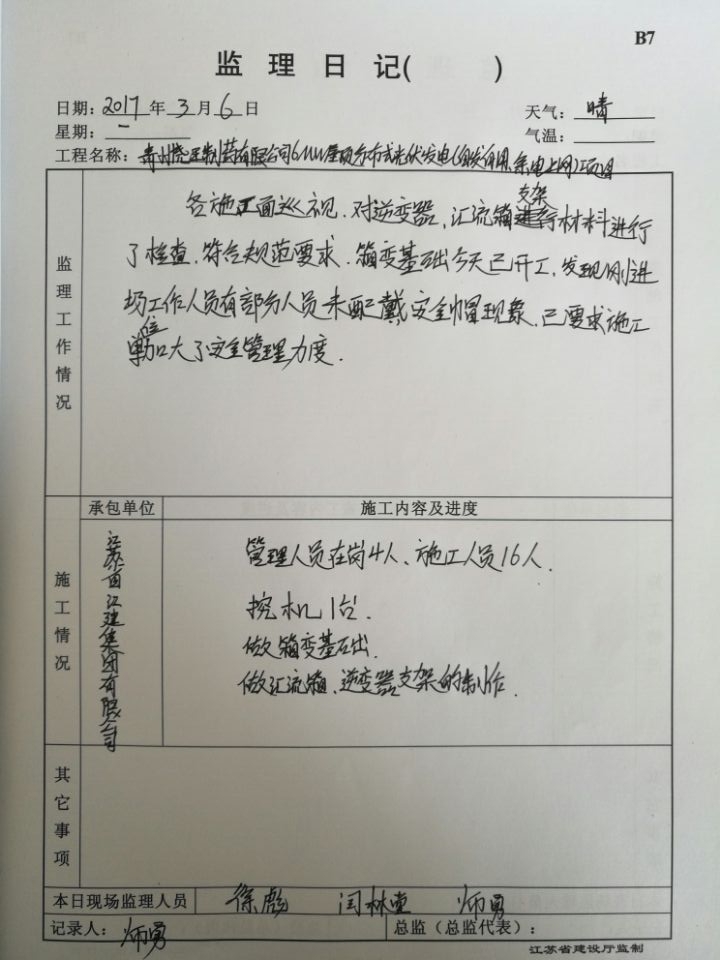 B7
监理日记( )
日期: 2017 年 3 月 6 日
天气: 晴
星期: 一
气温:
工程名称: 制药有限公司6MW屋顶分布式光伏发电(自发自用,余电上网)项目
监理工作情况
各施工面巡视.对逆变器,汇流箱支架材料进行
了检查.符合规范要求.箱变基础今天已开工,发现刚进
场工作人员有部分人员未配戴安全帽现象,已要求施工
单位加大了安全管理力度.
承包单位
施工内容及进度
施工情况
江苏 江建集团有限公司
管理人员在岗4人、施工人员16人.
挖机1台.
做箱变基础.
做汇流箱、逆变器支架的制作.
其它事项
本日现场监理人员
徐彪 闫林 师勇
记录人: 师勇
总监(总监代表):
江苏省建设厅监制